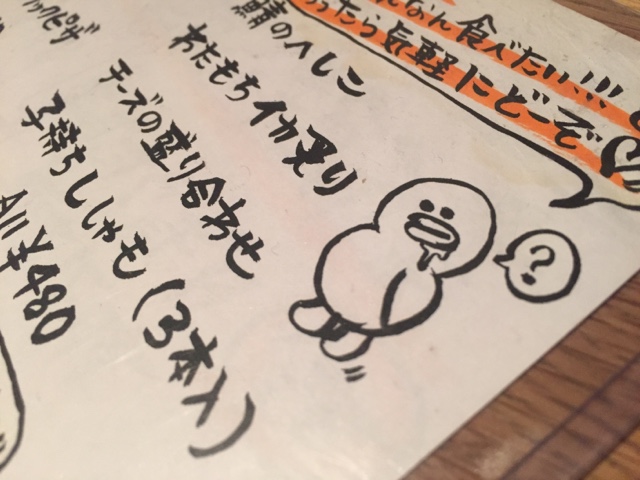 んなん食べたい、、、
ったら気軽にどーぞ
ックピザ
鯖のへしこ
わたもちイカ炙り
チーズの盛り合わせ
子持ちししゃも(3本入)
All ¥480
?